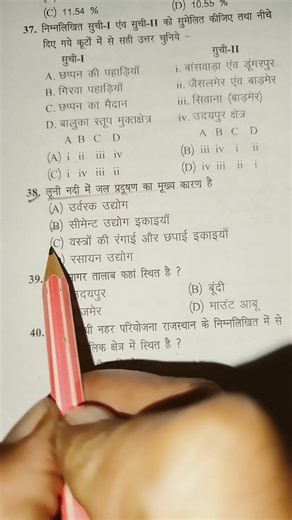 (C) 11.54 % (D) 10.55 %
37. निम्नलिखित सुची-I एंव सुची-II को सुमेलित कीजिए तथा नीचे
दिए गये कूटों में से सही उत्तर चुनिये -
सुची-I सुची-II
A. छप्पन की पहाड़ियाँ i. बांसवाड़ा एंव डूंगरपुर
B. गिरवा पहाड़ियाँ ii. जैसलमेर एंव बाड़मेर
C. छप्पन का मैदान iii. सिवाना (बाड़मेर)
D. बालुका स्तूप मुक्तक्षेत्र iv. उदयपुर क्षेत्र
A B C D A B C D
(A) i ii iii iv (B) iii iv i ii
(C) i iv iii ii (D) iv iii ii i
38. लूनी नदी में जल प्रदूषण का मुख्य कारण है
(A) उर्वरक उद्योग
(B) सीमेन्ट उद्योग इकाइयाँ
(C) वस्त्रों की रंगाई और छपाई इकाइयाँ
रसायन उद्योग
39. गर तालाब कहां स्थित है ?
दयपुर (B) बूंदी
जमेर (D) माउंट आबू
40. नहर परियोजना राजस्थान के निम्नलिखित में से
क्षेत्र में स्थित है ?